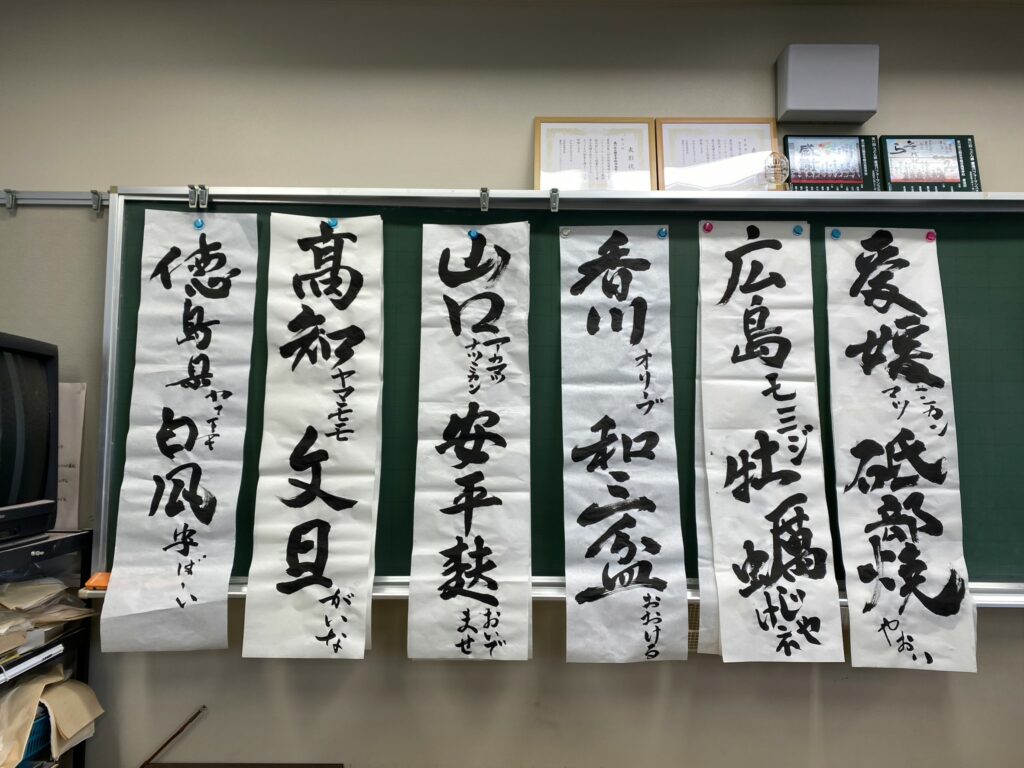 表彰状
愛媛
ミカン
マツ
砥部焼
やおい
広島
モミジ
牡蠣
じゃ
香川
オリーブ
和三盆
おおける
山口
アカマツ
ナツミカン
安平麸
おいで
ませ
髙知
ヤマモモ
文旦
がいな
徳島県
ヤマモモ
白風